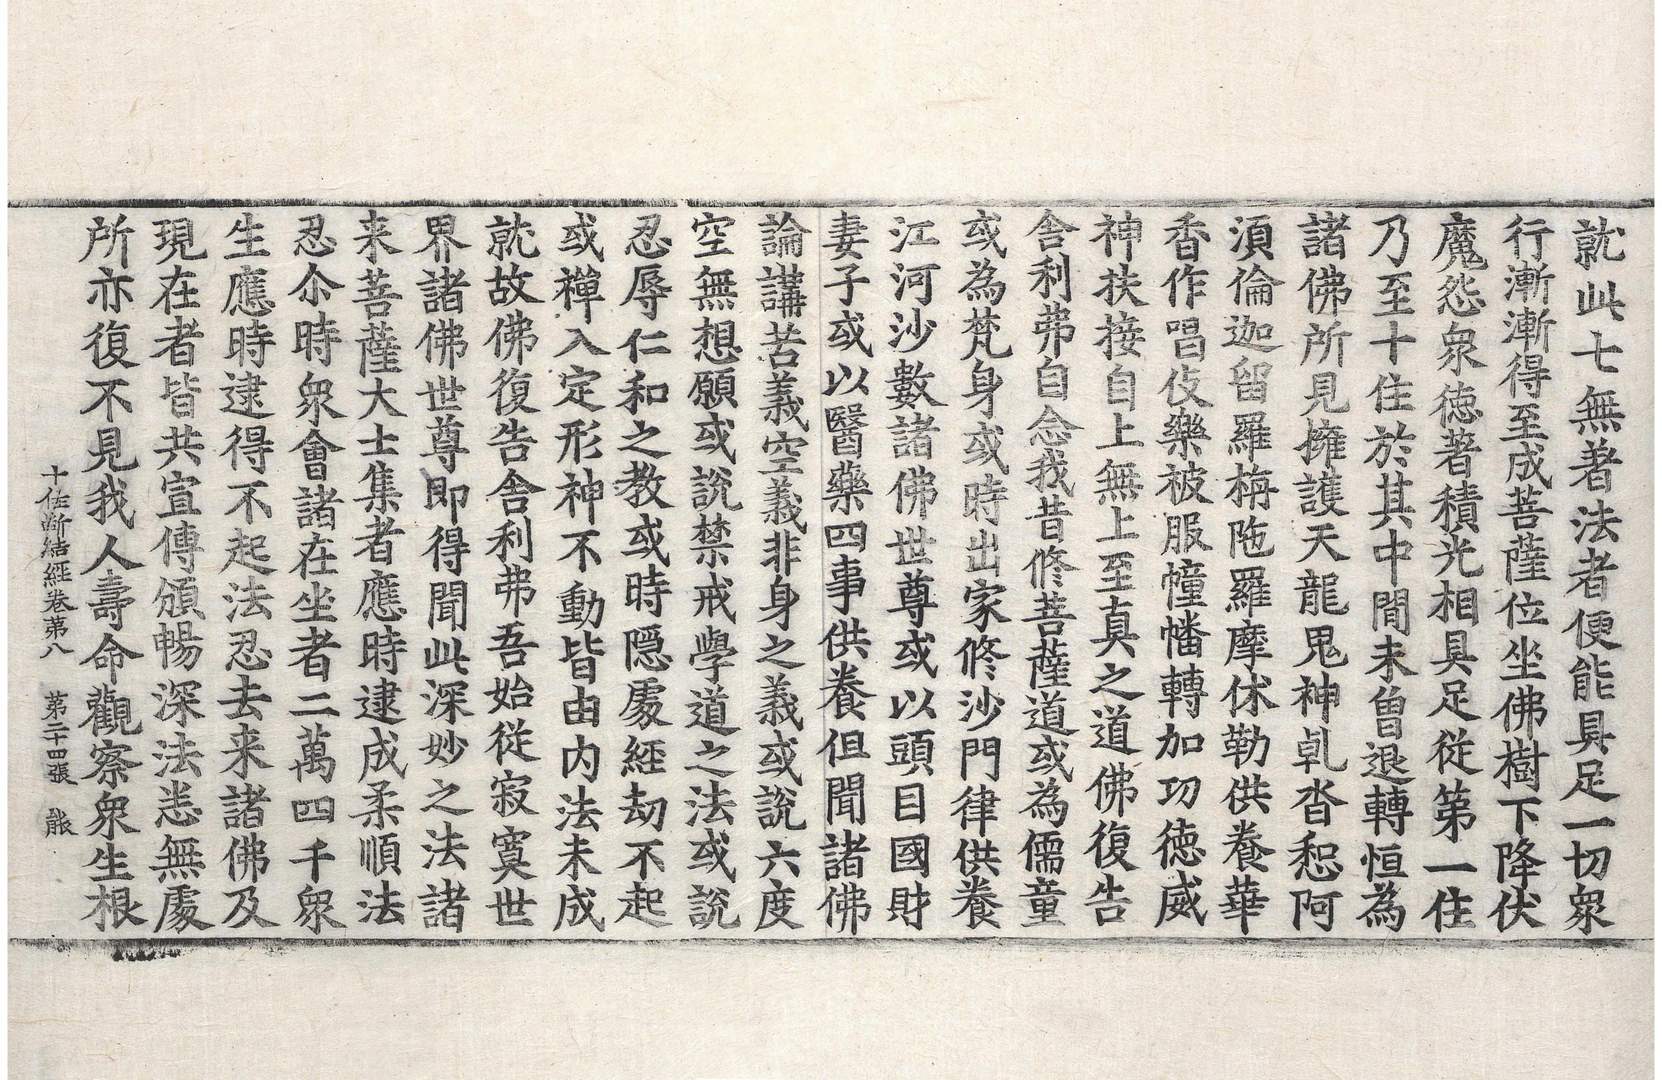 就此七無著法者便能具足一切眾
行漸漸得至成菩薩位坐佛樹下降伏
魔怨眾徳著積光相具足従第一住
乃至十住於其中間未曽退轉恒為
諸佛所見擁護天龍鬼神乹沓惒阿
湏倫迦留羅旃陁羅摩休勒供養華
香作唱伎樂被服幢幡轉加功徳威
神扶接自上無上至真之道佛復告
舎利弗自念我昔修菩薩道或為儒童
或為梵身或時出家修沙門律供養
江河沙數諸佛世尊或以頭目國財
妻子或以醫藥四事供養但聞諸佛
論講苦義空義非身之義或說六度
空無想願或說禁戒學道之法或說
忍辱仁和之教或時隠處經劫不起
或禪入定形神不動皆由內法未成
就故佛復告舎利弗吾始従寂寞世
界諸佛世尊即得聞此深妙之法諸
来菩薩大士集者應時逮成柔順法
忍尒時眾會諸在坐者二萬四千眾
生應時逮得不起法忍去来諸佛及
現在者皆共宣傳頒暢深法恙無處
所亦復不見我人壽命觀察眾生根
十住断結經卷第八　第二十四張　龍